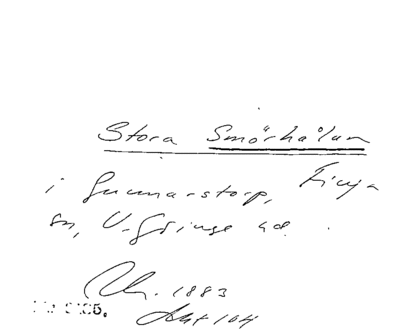 Stora Smörhålan
i Gunnarstorp, Finja
sn, V. Göinge hd.
1883
Akt 104